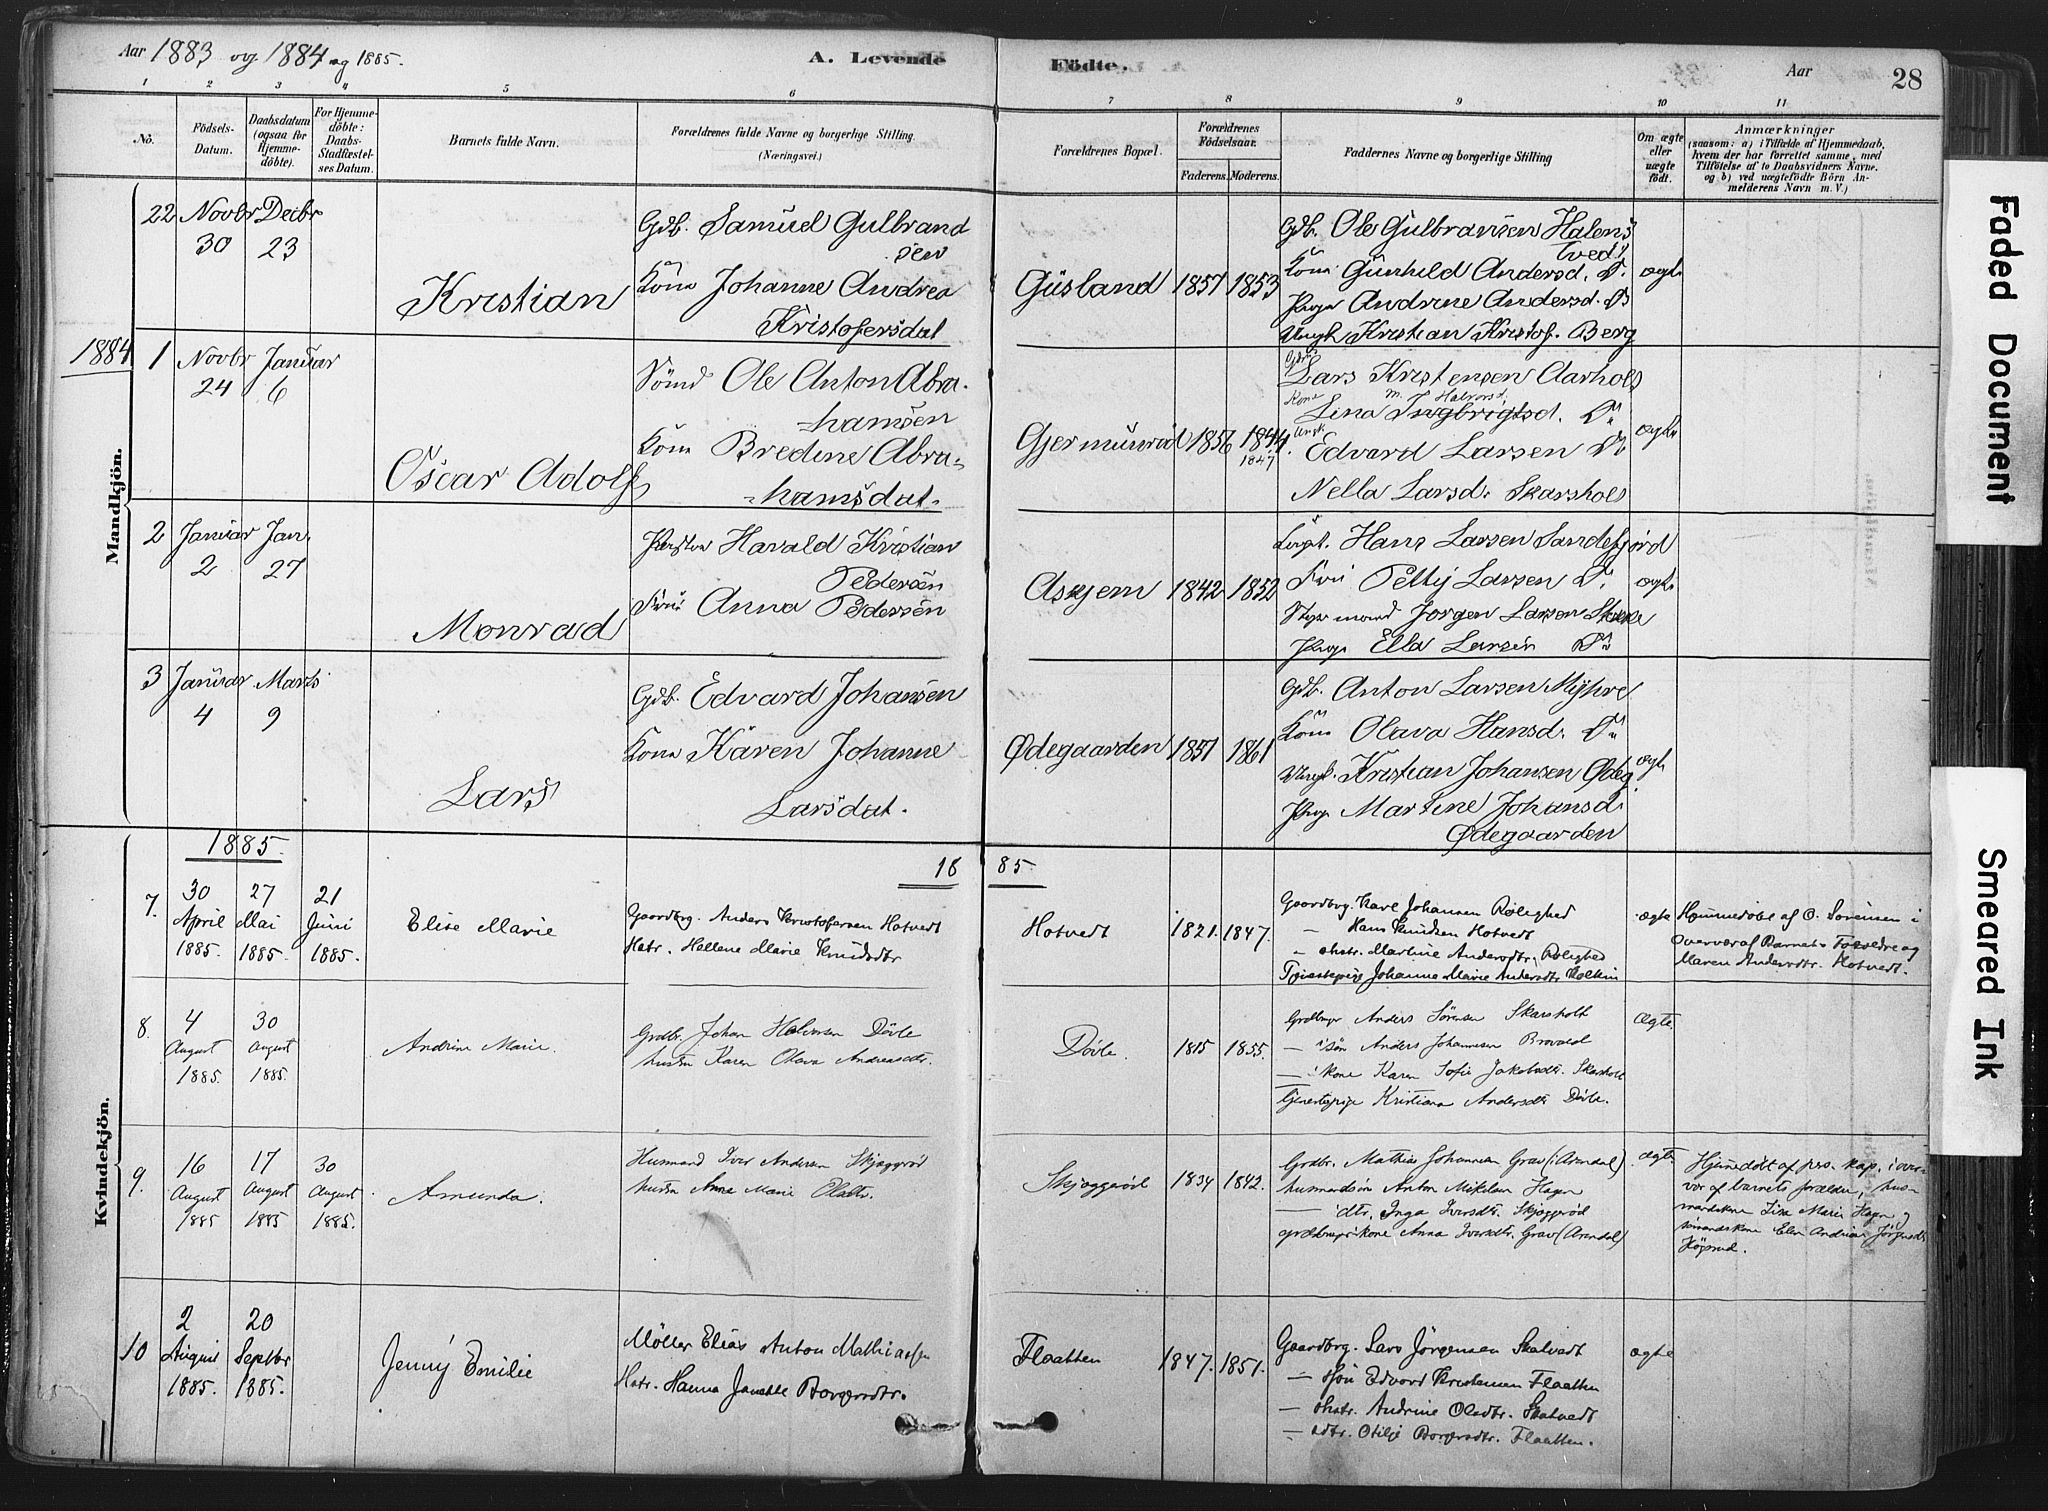 Aar 1883 og 1884 og 1885.
A. Levende Födte.
Aar
28
1 2 3 4 5 6 7 8 9 10 11
No.
Födsels-
Datum.
Daabsdatum
(ogsaa for
Hjemme-
döbte).
For Hjemme-
döbte:
Daabs-
Stadfæstel-
ses Datum.
Barnets fulde Navn.
Forældrenes fulde Navne og borgerlige Stilling.
(Næringsvei.)
Forældrenes Bopæl.
Forældrenes
Födselsaar.
Faderens. Moderens.
Faddernes Navne og borgerlige Stilling
Om ægte
eller
uægte
födt.
Anmærkninger
(saasom: a) i Tilfælde af Hjemmedaab,
hvem der har forrettet samme, med
Tilföielse af to Daabsvidners Navne.
og b) ved uægtefödte Börn An-
melderens Navn m. V.)
Mandkjön.
22 Novbr Decbr
30 23
Kristian
Gdb. Samuel Gulbrand
sen
Kone Johanne Andrea
Kristofersdat
Gusland 1857 1853
Gdb. Ole Gulbransen Halens
tved
Kone Gunhild Andersd. Do
Pige Andrine Andersd. Do
Ungk Kristian Kristof. Berg
ægte
1884
1 Novbr Januar
24 6
Oscar Adolf
Sömd Ole Anton Abra-
hamsen
Kone Bredine Abra-
hamsdat.
Gjermundröd 1856 1844.
1847
Lars Kristensen Aarholt
Kone M. Halvorsd.
Lina Ingbrigtsd. Do
Ungk Edvard Larsen Do
Nella Larsd. Skarsholt
ægte
2 Januar Jan.
2 27
Monrad
Harald Kristian
Pedersen
Fru Anna Pedersen
Askjem 1842 1852
Hans Larsen Sandefjord
Fru Petty Larsen Do
Styrmand Jorgen Larsen
Pige Ella Larsen Do
ægte
3 Januar Marts
4 9
Lars
Gdb. Edvard Johansen
Kone Karen Johanne
Larsdat.
Ødegaarden 1857 1861
Gdb. Anton Larsen Myhre
Kone Olava Hansd. Do
Ungk. Kristian Johansen Ødeg.
Pige Martine Johansd.
Ødegaarden
ægte
1885.
18 85.
Kvindekjön.
7. 30 27 21
April Mai Juni
1885. 1885. 1885.
Elise Marie
Gaardbrg. Anders Kristofersen Hotvedt
Hstr. Hellene Marie Knudsdtr
Hotvedt 1821. 1847.
Gaardbrg. Karl Johansen Rolighed
— Hans Knudsen Hotvedt
— Martine Andersdtr. Rolighed
Tjenestepige Johanne Marie Andersdtr
ægte
Hjemmedöbt af O. Sörensen i
Overvær af Barnets Forældre og
Maren Andersdtr. Hotvedt.
8. 4 30
August August
1885. 1885.
Andrine Marie.
Grdbr. Johan Halvorsen Dövle
hustru Karen Olava Andreasdtr.
Dövle. 1815 1855.
Grdbruger Anders Sörensen Skarsholt
— sön Anders Johannesen
— kone Karen Sofie Jakobsdtr. Skarsholt
tjenestepige Kristiana Andersdtr Dövle.
Ægte
9. 16 17 30
August August August
1885 1885 1885.
Amunda.
Husmand Iver Andersen Skjæggeröd
hustru Anna Marie Olsdtr.
Skjæggeröd 1834 1842.
Grdbr. Mathias Johannesen Grav (i Arendal)
husmandsön Anton Mikelsen Hagen
— dtr. Inga Iversdtr. Skjæggeröd
grdbrugerkone Anna Iversdtr. Grav (Arendal)
ægte.
Hjemedöbt af pers. kap. i over-
vær af barnets forældre, hus-
mandskone Lisa Marie Hagen og
sömandskone Elen Andrea Jörgensdtr
Högsrud.
10 2 20
August Septbr
1885. 1885.
Jenny Emilie
Möller Elias Anton Mathiassen
Hstr. Hanna Janette Borgersdtr.
Flaatten 1847. 1851.
Gaardbrg. Lars Jörgensen Skatvedt
— sön Edvard Kristensen Flaatten
— hstr. Andrine Olsdtr. Skatvedt
— dtr. Otilje Borgersdtr. Flaatten.
ægte
Faded Document
Smeared Ink